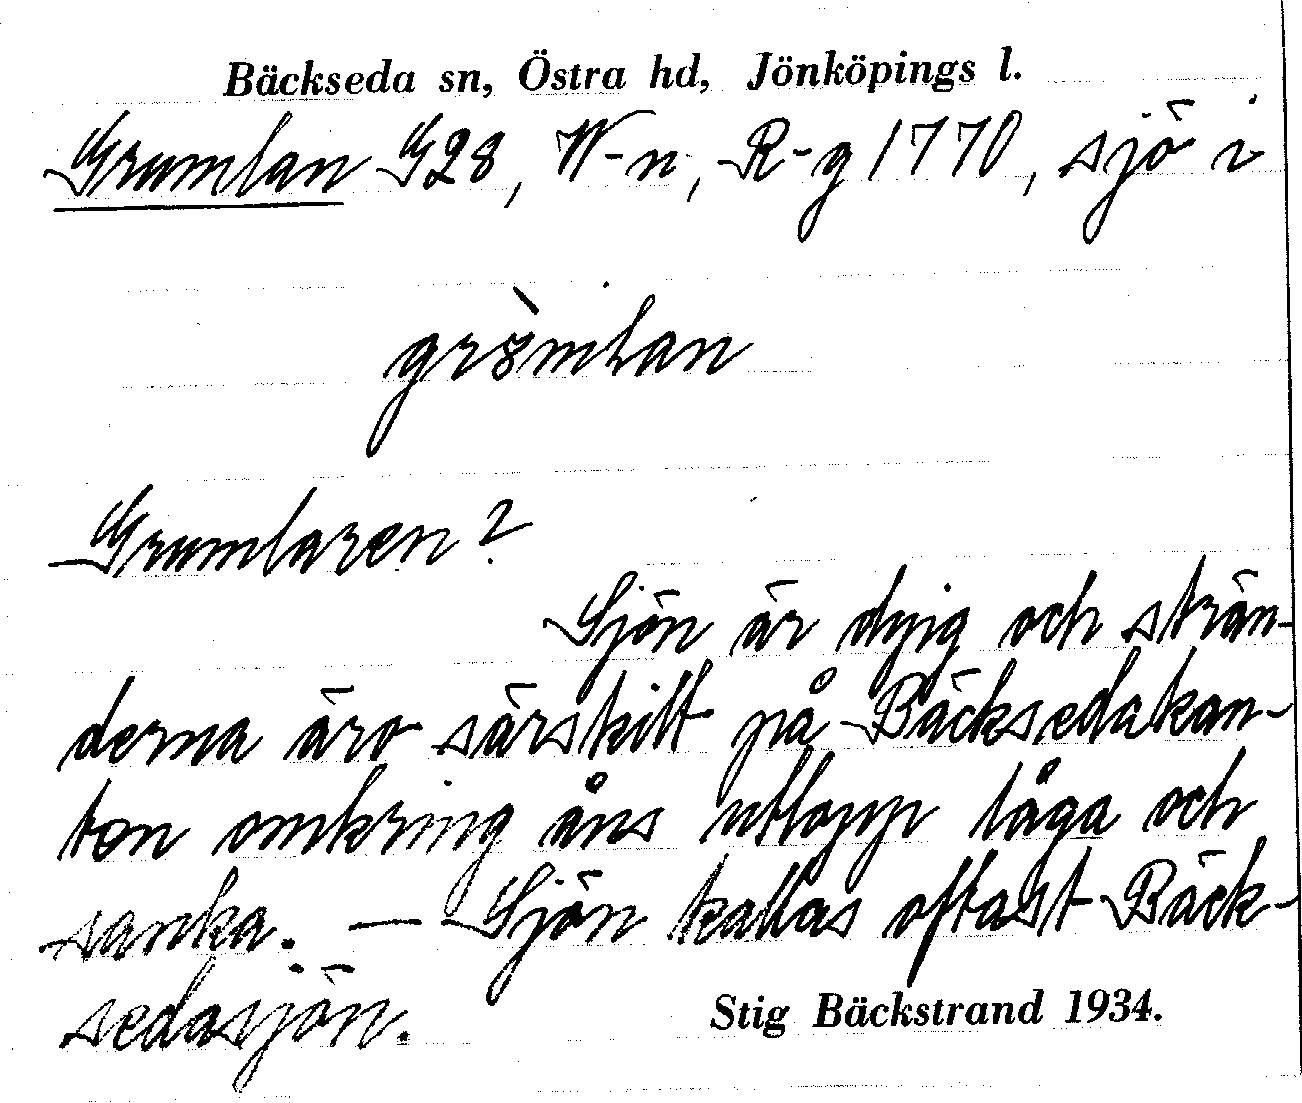 Bäckseda sn, Östra hd, Jönköpings l.
Grumlan G28, W-n, R-g 1770, sjö i
Grumlaren?
Sjön är dyig och strän-
derna äro särskilt på Bäcksedakan-
ten omkring åns utlopp låga och
sanka. — Sjön kallas oftast Bäck-
sedasjön.
Stig Bäckstrand 1934.